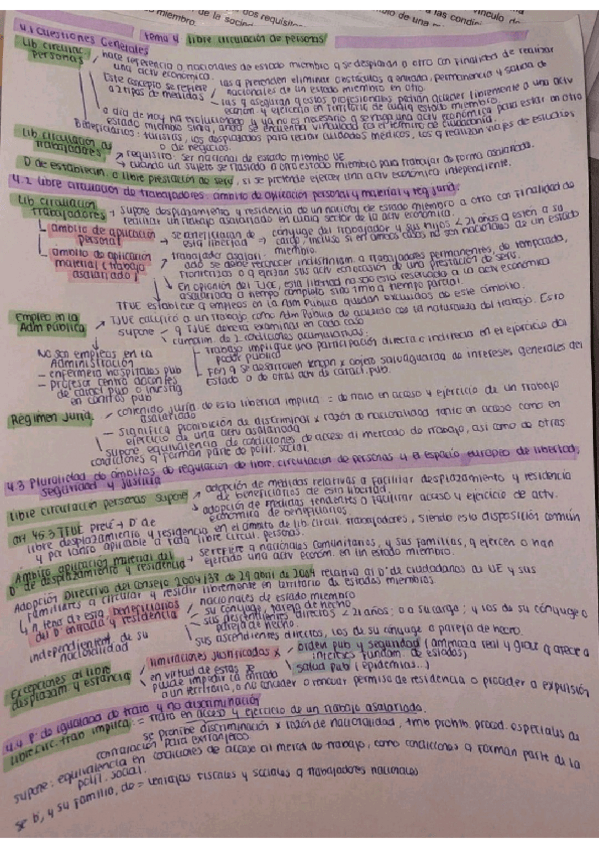 4.1 Cuestiones Generales Tema 4 libre circulación de personas
Lib circulac. personas → hace referencia a nacionales de estado miembro q se desplazan a otro con finalidad de realizar
una actv económica.
Este concepto se refiere a 2 tipos de medidas
las q pretenden eliminar obstáculos a entrada, permanencia y salida de
nacionales de un estado miembro en otro.
las q aseguran q estos profesionales puedan acceder libremente a una actv
econom y ejercerla en territorio de cualq estado miembro.
a día de hoy ha evolucionado y ya no es necesario q se haga una actv económica para estar en otro
estado miembro sino, ahora se encuentra vinculada
Beneficiarios: turistas, los desplazados para recibir cuidados médicos, los q realizan viajes de estudios
o de negocios.
Lib circulación de trabajadores → requisito: ser nacional de estado miembro UE
→ cuando un sujeto se traslada a otro estado miembro para trabajar de forma asalariada.
D de establecim. o libre prestación de serv. si se pretende ejercer una actv económica independiente.
4.2 Libre circulación de trabajadores: ámbito de aplicación personal y material y reg jurid.
Lib circulación trabajadores → supone desplazamiento y residencia de un nacional de estado miembro a otro con finalidad de
realizar un trabajo asalariado en cualq sector de la actv económica.
ámbito de aplicación personal → se benefician de esta libertad → cónyuge del trabajador y sus hijos < 21 años o estén a su
cargo, incluso si en ambos casos no son nacionales de un estado
miembro.
ámbito de aplicación material (trabajo asalariado)
trabajador asalari.
se debe reconocer indistintam. a trabajadores permanentes, de temporada,
fronterizos o q ejerzan sus actv en ocasión de una prestación de serv.
en opinión del TJCE, esta libertad no solo está restringida a la actv económica
asalariada a tiempo completo sino tmb a tiempo parcial
TFUE establece q empleos en la Adm Pública quedan excluidos de este ámbito.
Empleo en la Adm pública → TJUE califica a un trabajo como Adm Pública de acuerdo con la naturaleza del trabajo. Esto
supone - q TJUE deberá examinar en cada caso
- cumplan de 2 condiciones acumulativas:
Trabajo implique una participación directa e indirecta en el ejercicio del
poder público
Fon q se desarrollen tengan x objeto salvaguarda de intereses generales del
Estado o de otras actv de caract. pub.
No son empleos en la Administración
- enfermera hospitales pub
- profesor centro docentes
de caract pub o investig
en centros pub
Régimen Juríd. → contenido juríd de esta libertad implica: = de trato en acceso y ejercicio de un trabajo
asalariado
→ significa prohibición de discriminac x razón de nacionalidad tanto en acceso como en
ejercicio de una actv asalariada
supone equivalencia de condiciones de acceso al mercado de trabajo, así como de otras
condiciones q forman parte de polit. social.
4.3 Pluralidad de ámbitos de regulación de libre circulación de personas y el espacio europeo de libertad,
seguridad y justicia
Libre circulación personas supone → adopción de medidas relativas a facilitar desplazamiento y residencia
de beneficiarios de esta libertad.
adopción de medidas tendentes a facilitar acceso y ejercicio de actv.
económica de beneficiarios.
art 45.3 TFUE prevé → D de
libre desplazamiento y residencia en el ámbito de lib circul. trabajadores, siendo esta disposición común
y por tanto aplicable a toda libre circul. personas.
Ámbito aplicación material del D de desplazamiento y residencia → se refiere a nacionales comunitarios, y sus familias, q ejercen o han
ejercido una actv económ. en un estado miembro.
Adopción Directiva del Consejo 2004/38 de 29 abril de 2004 relativa al D de ciudadanos de UE y sus
familiares a circular y residir libremente en territorio de estados miembros
beneficiarios del D entrada y residencia
independientem. de su nacionalidad
nacionales de estado miembro
su cónyuge, pareja de hecho
sus descendientes directos < 21 años; o a su cargo; y los de su cónyuge o
pareja de hecho.
sus ascendientes directos, los de su cónyuge o pareja de hecho.
Excepciones al libre desplazam y estancia
limitaciones justificadas x → orden pub y seguridad (amenaza real y grave q afecte a
intereses fundam. de estados)
salud pub (epidemias..)
en virtud de estas se
puede impedir la entrada
a un territorio, o no conceder o renovar permiso de residencia o proceder a expulsión
4.4 P. de igualdad de trato y no discriminación
Libre circ. trab implica: = trato en acceso y ejercicio de un trabajo asalariado.
se prohíbe discriminación x razón de nacionalidad, tmb prohib. proced. especiales de
contratación para extranjeros
supone: equivalencia en condiciones de acceso al mercd de trabajo, como condiciones q forman parte de la
polit. social.
se b', y su familia, de = ventajas fiscales y sociales q trabajadores nacionales